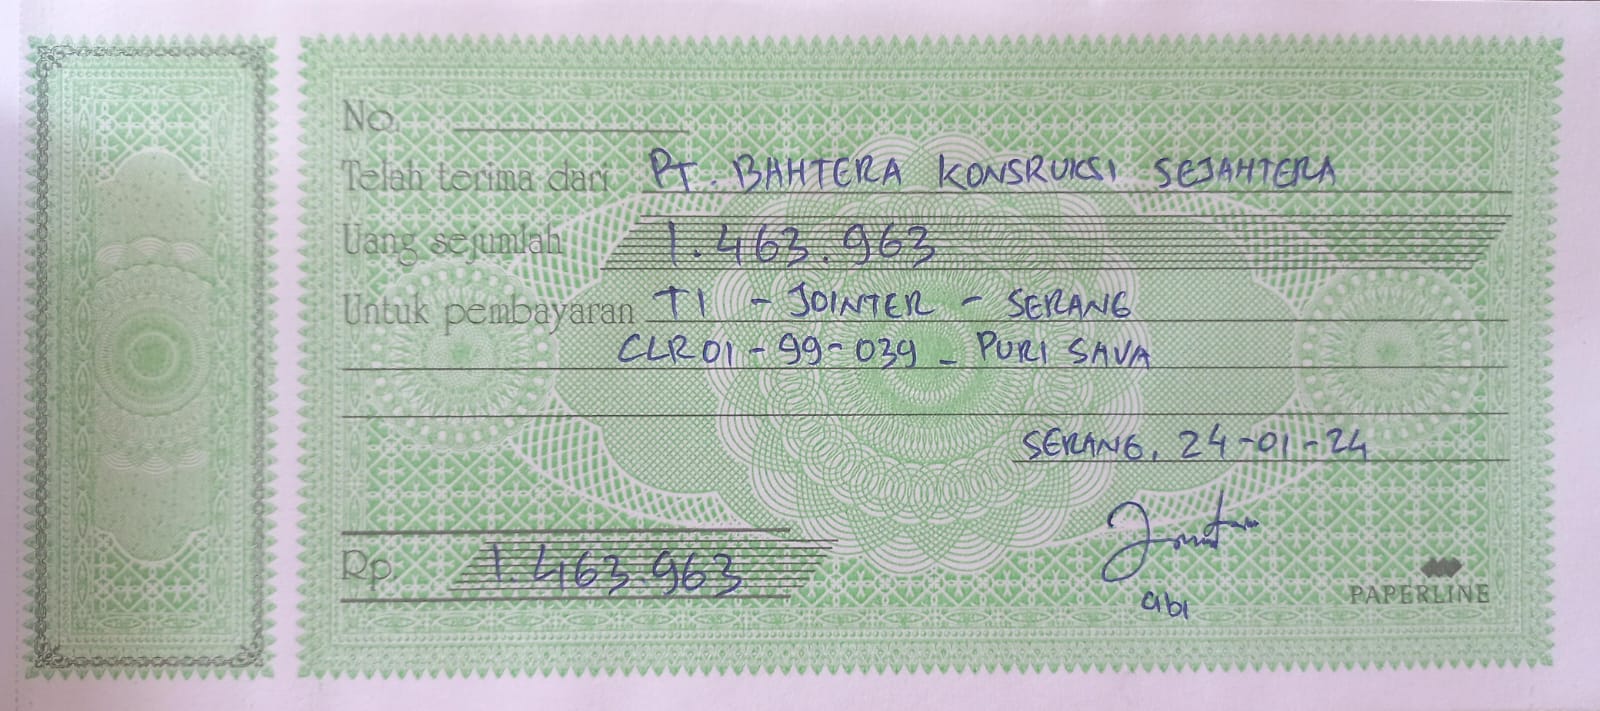 No.
Telah terima dari PT. BAHTERA KONSRUKSI SEJAHTERA
Uang sejumlah 1.463.963
Untuk pembayaran T1 - JOINTER - SERANG
CLR01-99-039 - PURI SAVA
SERANG, 24-01-24
Rp. 1.463.963
abi
PAPERLINE